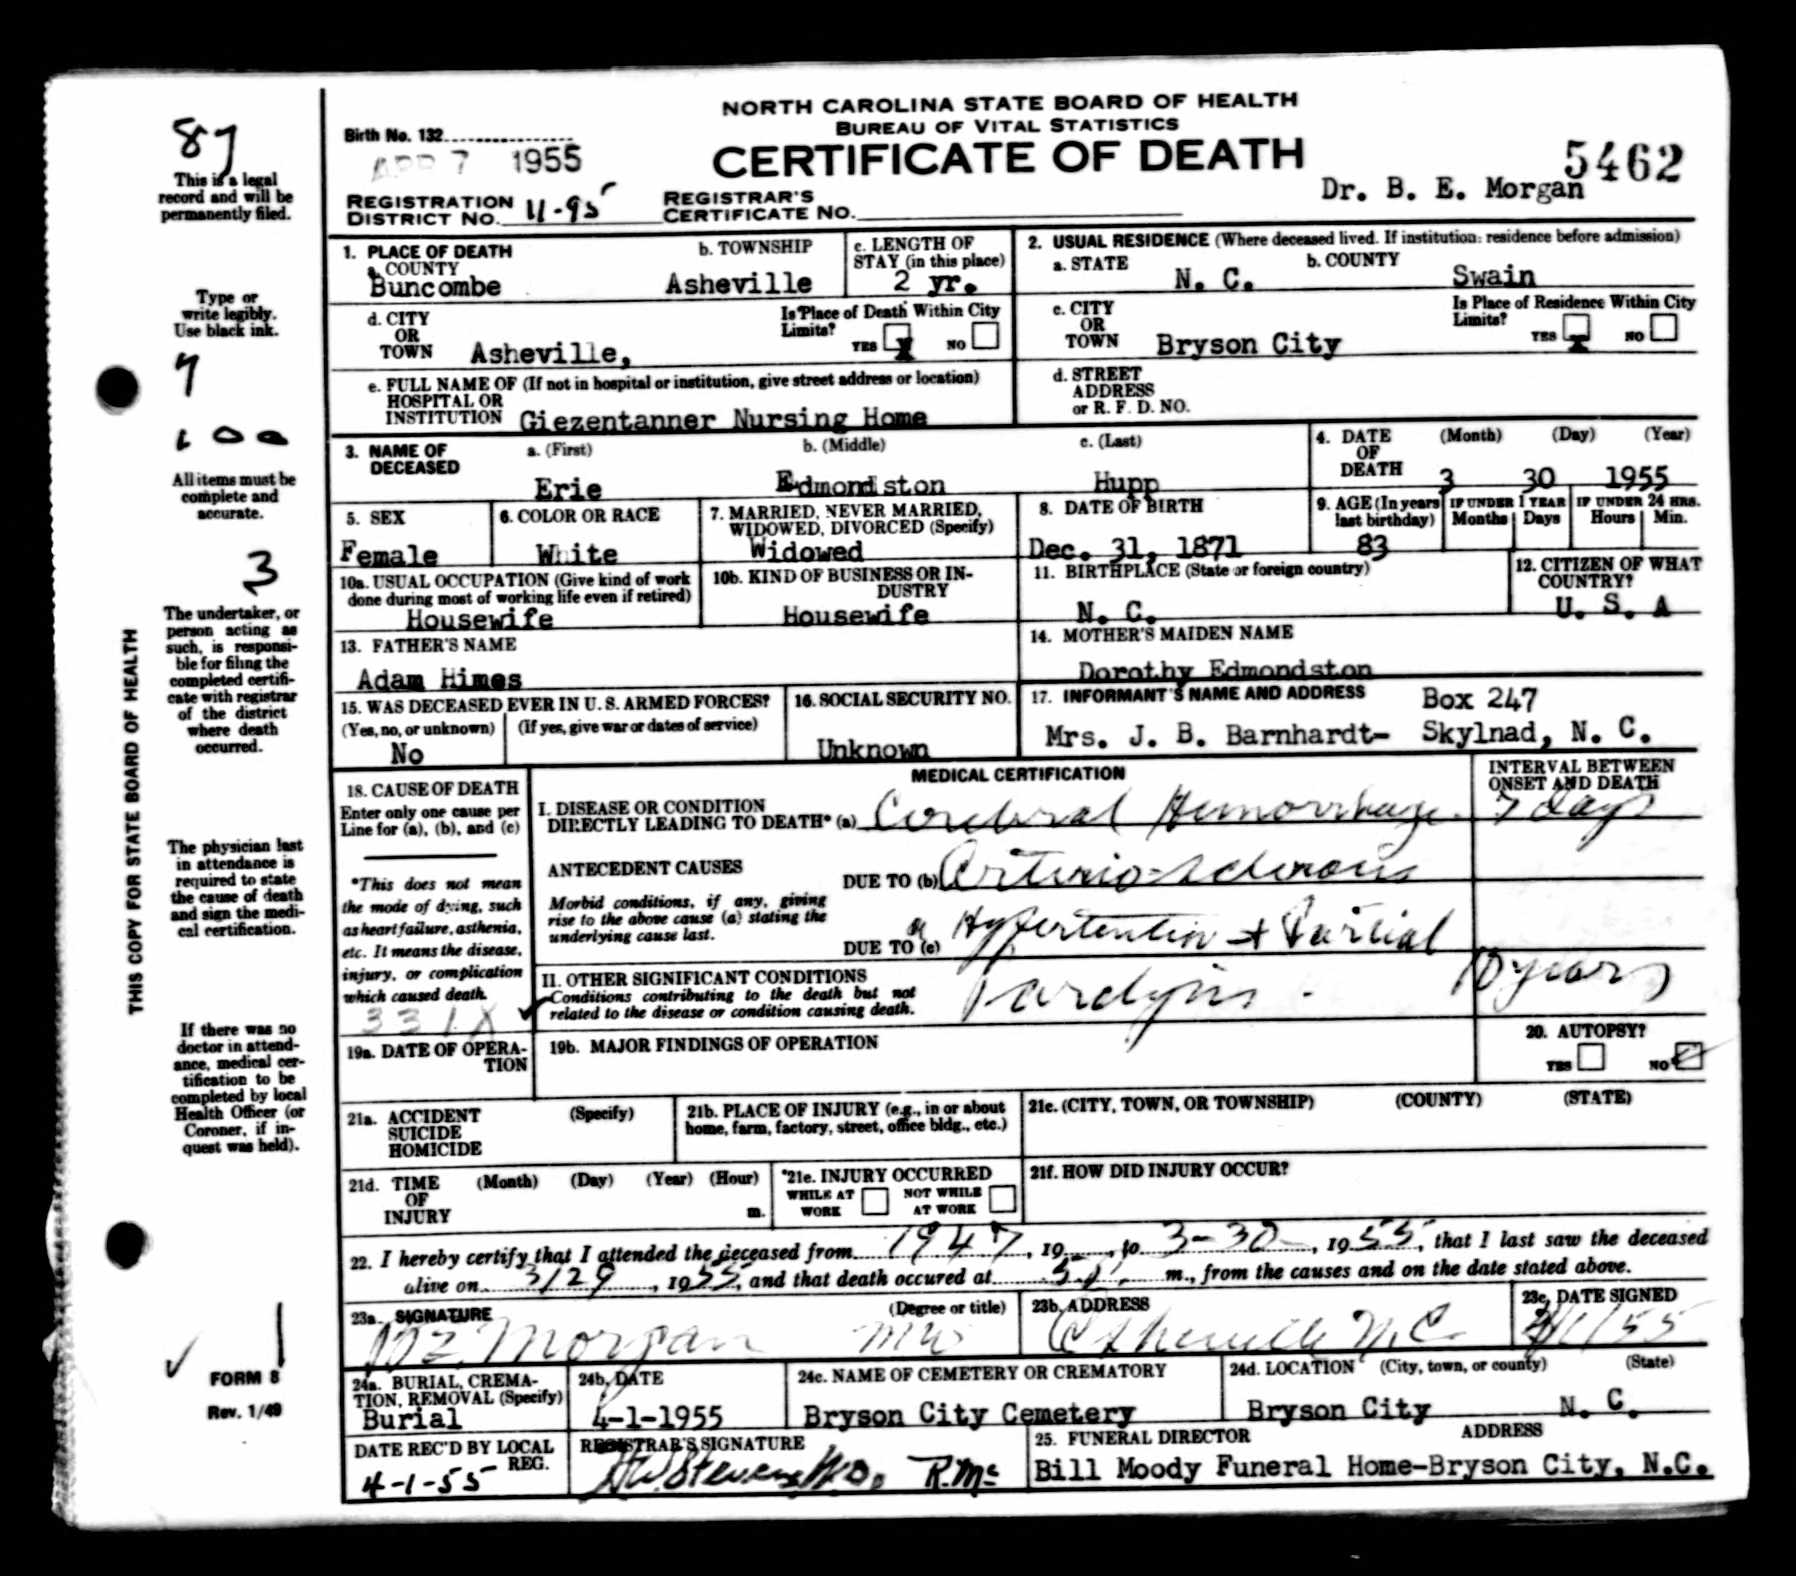 NORTH CAROLINA STATE BOARD OF HEALTH
BUREAU OF VITAL STATISTICS
CERTIFICATE OF DEATH
Birth No. 132
APR 7 1955
5462
Dr. B. E. Morgan
REGISTRATION DISTRICT NO. 11-95
REGISTRAR'S CERTIFICATE NO.
87
This is a legal
record and will be
permanently filed.
Type or
write legibly.
Use black ink.
7
100
All items must be
complete and
accurate.
3
The undertaker, or
person acting as
such, is responsi-
ble for filing the
completed certifi-
cate with registrar
of the district
where death
occurred.
The physician last
in attendance is
required to state
the cause of death
and sign the medi-
cal certification.
If there was no
doctor in attend-
ance, medical cer-
tification to be
completed by local
Health Officer (or
Coroner, if in-
quest was held).
1
FORM 8
Rev. 1/49
THIS COPY FOR STATE BOARD OF HEALTH
1. PLACE OF DEATH
a. COUNTY
Buncombe
b. TOWNSHIP
Asheville
c. LENGTH OF
STAY (in this place)
2 yr.
2. USUAL RESIDENCE (Where deceased lived. If institution: residence before admission)
a. STATE
N. C.
b. COUNTY
Swain
d. CITY
OR
TOWN Asheville,
Is Place of Death Within City
Limits?
YES X NO
c. CITY
OR
TOWN Bryson City
Is Place of Residence Within City
Limits?
YES X NO
e. FULL NAME OF (If not in hospital or institution, give street address or location)
HOSPITAL OR
INSTITUTION Giezentanner Nursing Home
d. STREET
ADDRESS
or R. F. D. NO.
3. NAME OF
DECEASED
a. (First)
Erie
b. (Middle)
Edmondiston
c. (Last)
Hupp
4. DATE
OF
DEATH
(Month) (Day) (Year)
3 30 1955
5. SEX
Female
6. COLOR OR RACE
White
7. MARRIED, NEVER MARRIED,
WIDOWED, DIVORCED (Specify)
Widowed
8. DATE OF BIRTH
Dec. 31, 1871
9. AGE (In years
last birthday)
83
IF UNDER 1 YEAR
Months Days
IF UNDER 24 HRS.
Hours Min.
10a. USUAL OCCUPATION (Give kind of work
done during most of working life even if retired)
Housewife
10b. KIND OF BUSINESS OR IN-
DUSTRY
Housewife
11. BIRTHPLACE (State or foreign country)
N. C.
12. CITIZEN OF WHAT
COUNTRY?
U. S. A
13. FATHER'S NAME
Adam Himes
14. MOTHER'S MAIDEN NAME
Dorothy Edmondston
15. WAS DECEASED EVER IN U. S. ARMED FORCES?
(Yes, no, or unknown) (If yes, give war or dates of service)
No
16. SOCIAL SECURITY NO.
Unknown
17. INFORMANT'S NAME AND ADDRESS
Box 247
Mrs. J. B. Barnhardt- Skylnad, N. C.
18. CAUSE OF DEATH
Enter only one cause per
Line for (a), (b), and (c)
*This does not mean
the mode of dying, such
as heart failure, asthenia,
etc. It means the disease,
injury, or complication
which caused death.
331X
MEDICAL CERTIFICATION
INTERVAL BETWEEN
ONSET AND DEATH
I. DISEASE OR CONDITION
DIRECTLY LEADING TO DEATH* (a) Cerebral Hemorrhage. 7 days
ANTECEDENT CAUSES
Morbid conditions, if any, giving
rise to the above cause (a) stating the
underlying cause last.
DUE TO (b) Arterio-sclerosis
DUE TO (c) Hypertention + Partial
II. OTHER SIGNIFICANT CONDITIONS
Conditions contributing to the death but not
related to the disease or condition causing death.
Paralysis. 10 years
19a. DATE OF OPERA-
TION
19b. MAJOR FINDINGS OF OPERATION
20. AUTOPSY?
YES NO
21a. ACCIDENT
SUICIDE
HOMICIDE
(Specify)
21b. PLACE OF INJURY (e.g., in or about
home, farm, factory, street, office bldg., etc.)
21c. (CITY, TOWN, OR TOWNSHIP) (COUNTY) (STATE)
21d. TIME
OF
INJURY
(Month) (Day) (Year) (Hour)
m.
21e. INJURY OCCURRED
WHILE AT
WORK
NOT WHILE
AT WORK
21f. HOW DID INJURY OCCUR?
22. I hereby certify that I attended the deceased from 1947, 19 , to 3-30, 1955, that I last saw the deceased
alive on 3/29, 1955, and that death occured at m., from the causes and on the date stated above.
23a. SIGNATURE (Degree or title)
BE Morgan MD
23b. ADDRESS
Asheville N.C.
23c. DATE SIGNED
4/1/55
24a. BURIAL, CREMA-
TION, REMOVAL (Specify)
Burial
24b. DATE
4-1-1955
24c. NAME OF CEMETERY OR CREMATORY
Bryson City Cemetery
24d. LOCATION (City, town, or county) (State)
Bryson City N. C.
DATE REC'D BY LOCAL
REG.
4-1-55
REGISTRAR'S SIGNATURE
HW Stevens M.D. R.Mc
25. FUNERAL DIRECTOR ADDRESS
Bill Moody Funeral Home-Bryson City, N.C.